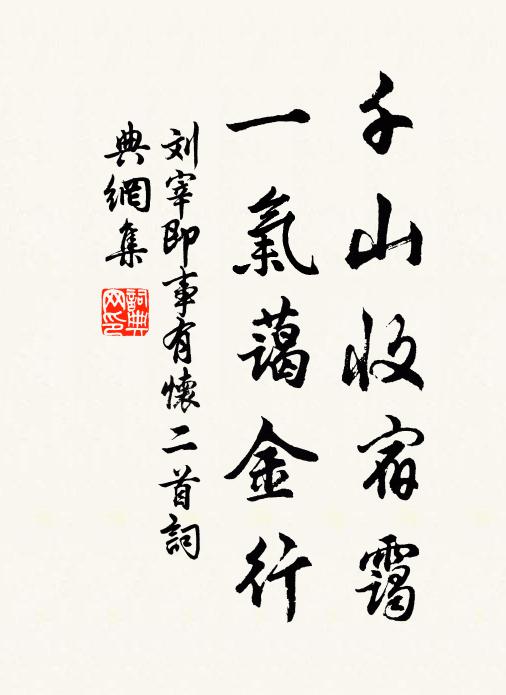 千山收宿靄
一氣藹金行
刘宰即事有懷二首詞
典網集
詞典
网印